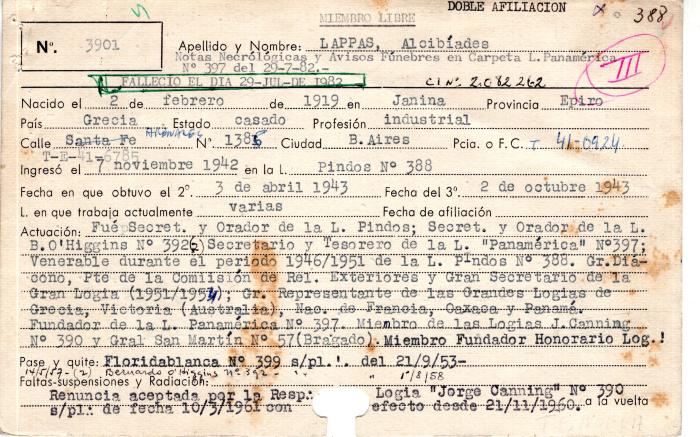 DOBLE AFILIACION
MIEMBRO LIBRE
388
N°. 3901
Apellido y Nombre: LAPPAS, Alcibíades
Notas Necrológicas y Avisos Fúnebres en Carpeta L.Panamérica
N° 397 del 29-7-82.-
FALLECIO EL DIA 29-JUL-DE 1982
CI N° 2.082.262
III
Nacido el 2 de febrero de 1919 en Janina Provincia Epiro
País Grecia Estado casado Profesión industrial
Calle Santa Fe N° 1385 Ciudad B.Aires Pcia. o F.C. T 41-0924
T-E-41-6785
Ingresó el 7 noviembre 1942 en la L. Pindos N° 388
Fecha en que obtuvo el 2°. 3 de abril 1943 Fecha del 3°. 2 de octubre 1943
L. en que trabaja actualmente varias Fecha de afiliación
Actuación: Fué Secret. y Orador de la L. Pindos; Secret. y Orador de la L.
B.O'Higgins N° 392(2) Secretario y Tesorero de la L. "Panamérica" N°397;
Venerable durante el periodo 1946/1951 de la L. Pindos N° 388. Gr.Diá-
cono, Pte de la Comisión de Rel. Exteriores y Gran Secretario de la
Gran Logia (1951/1954); Gr. Representante de las Grandes Logias de
Grecia, Victoria (Australia), Nac. de Francia, Oaxaca y Panamá.
Fundador de la L. Panamérica N° 397. Miembro de las Logias J.Canning
N° 390 y Gral San Martín N° 57(Bragado). Miembro Fundador Honorario Log.!
Pase y quite: Floridablanca N° 399 s/pl.!. del 21/9/53-
14/5/57-(2) Bernardo O'Higgins N° 392 - " " 1°/8/58
Faltas-suspensiones y Radiación:
Renuncia aceptada por la Resp. Logia "Jorge Canning" N° 390
s/pl: de fecha 10/3/1961 con efecto desde 21/11/1960. a la vuelta